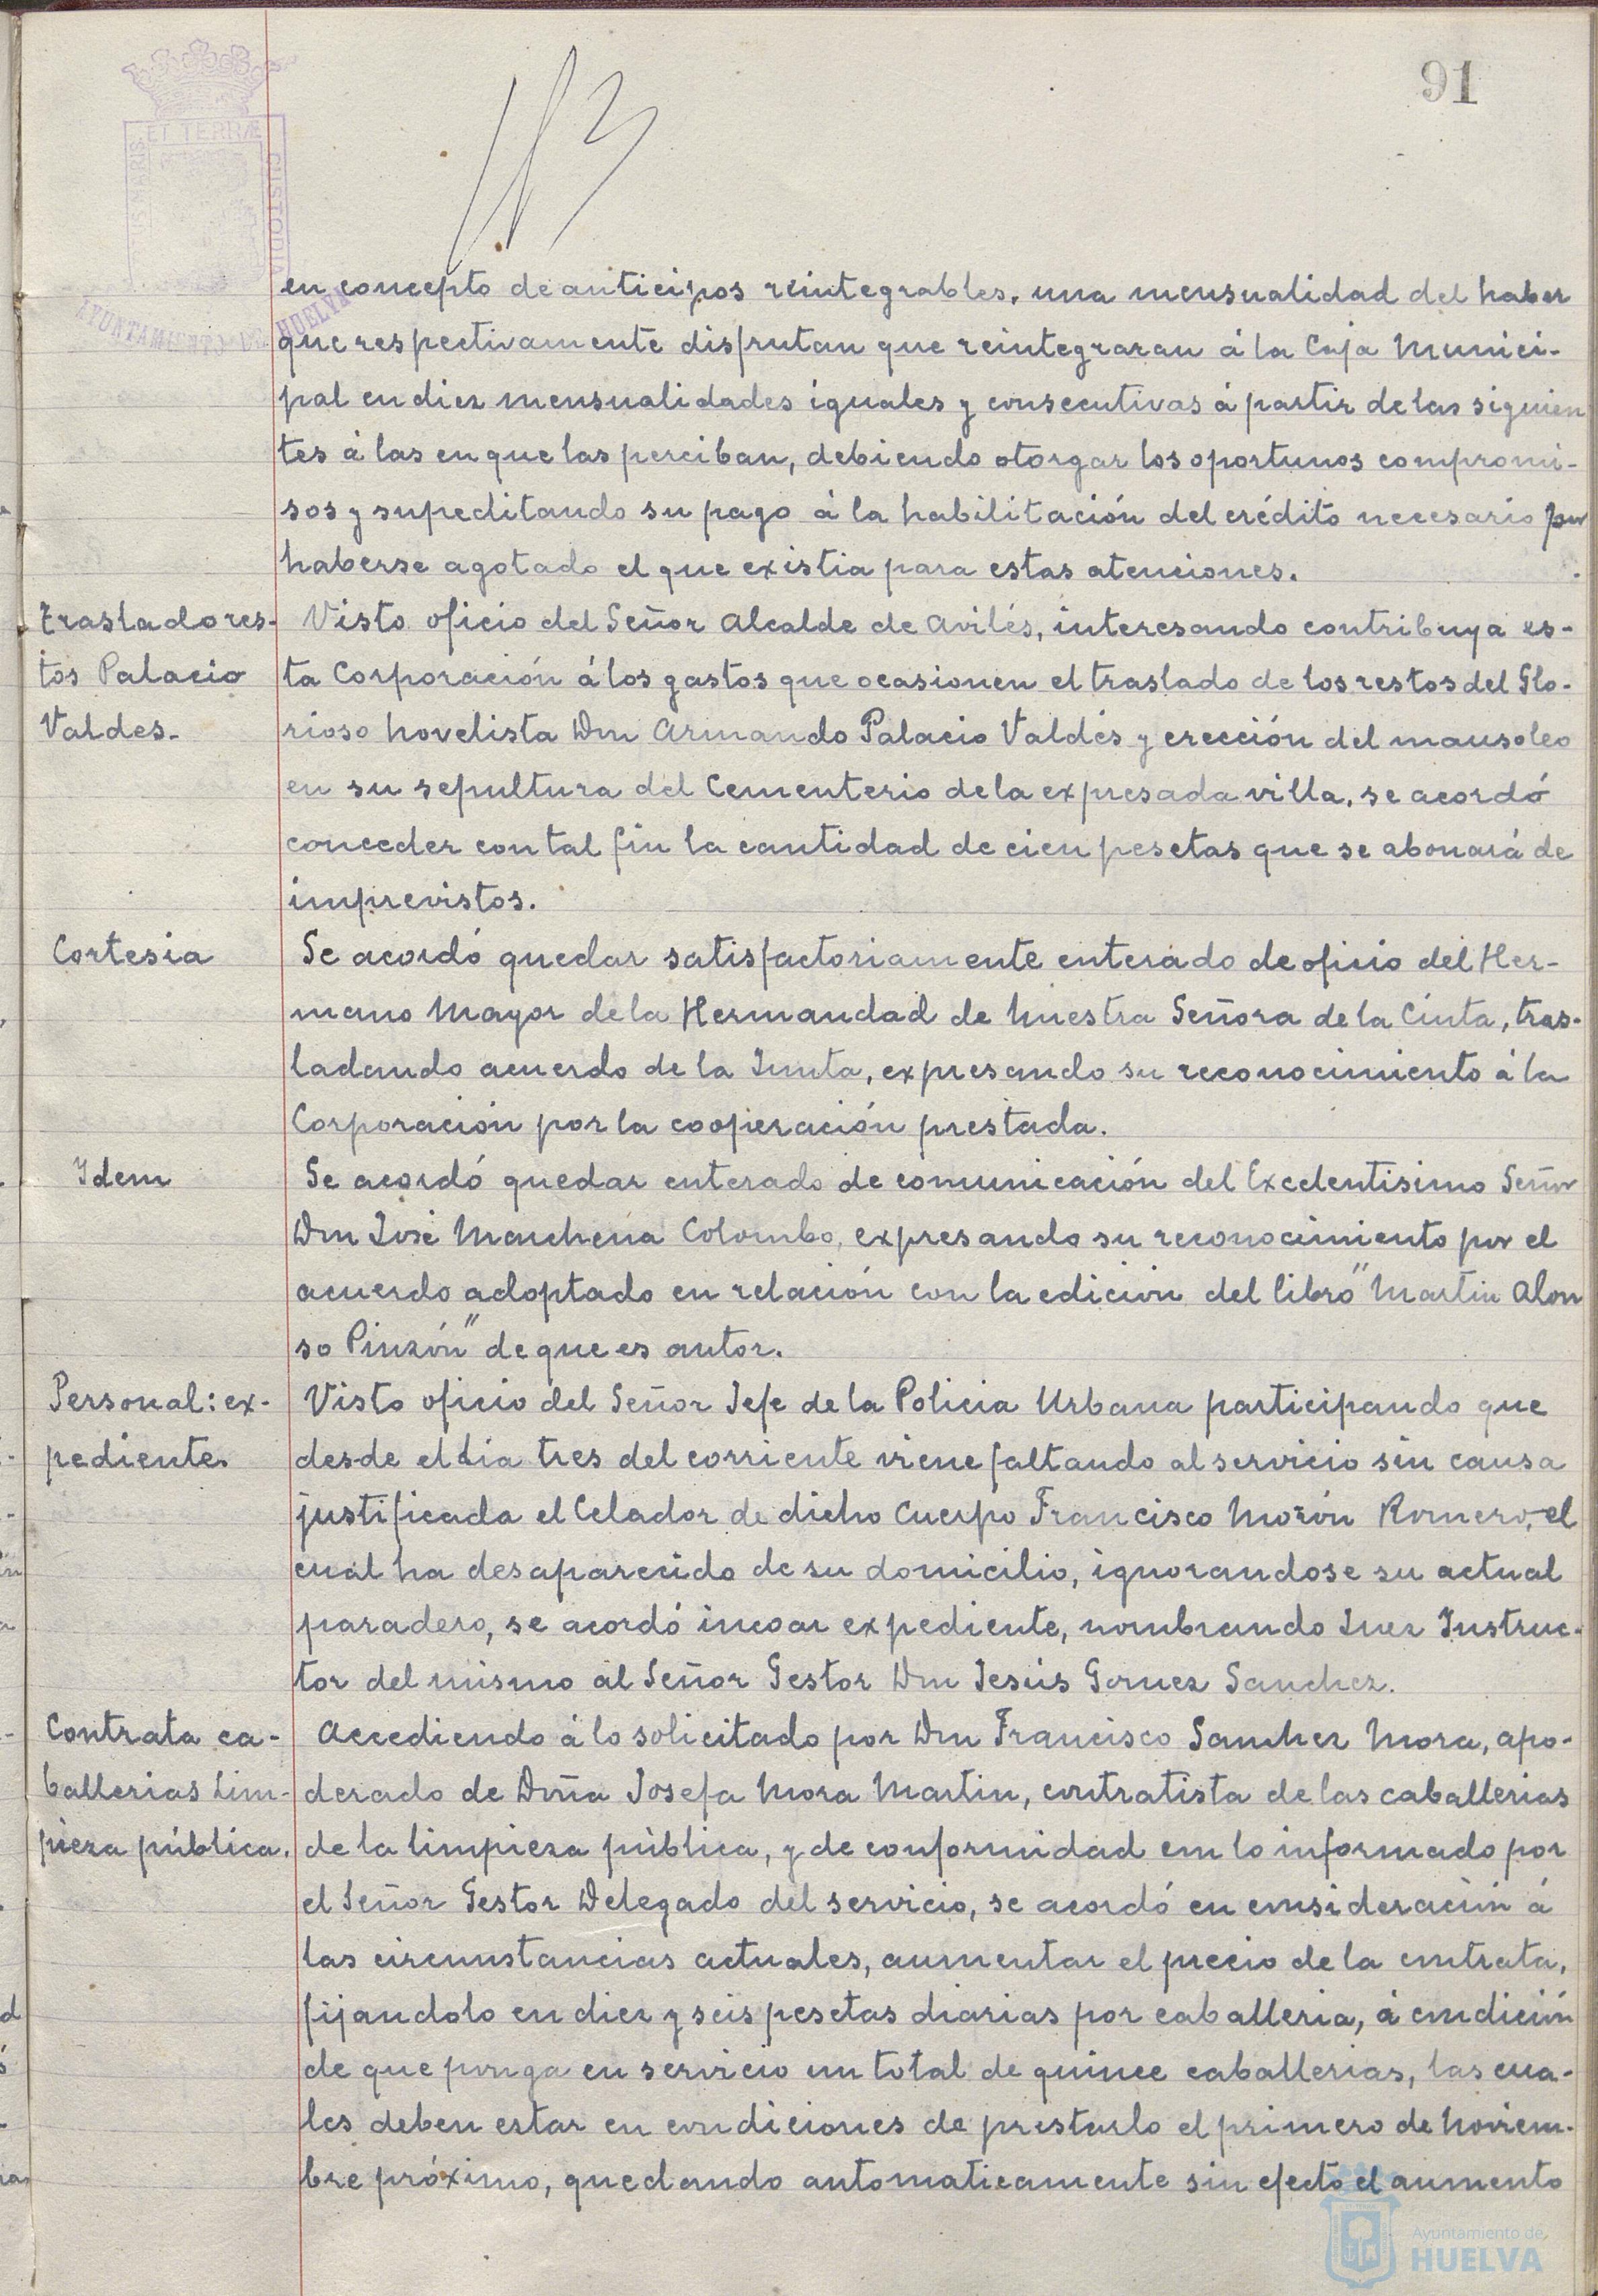 91
ET TERRÆ
CUSTODIA
AYUNTAMIENTO DE HUELVA
en concepto de anticipos reintegrables, una mensualidad del haber
que respectivamente disfrutan que reintegraran á la Caja Munici-
pal en diez mensualidades iguales y consecutivas á partir de las siguien
tes á las en que las perciban, debiendo otorgar los oportunos compromi-
sos y supeditando su pago á la habilitación del crédito necesario por
haberse agotado el que existia para estas atenciones.
Traslado res-
tos Palacio
Valdes.
Visto oficio del Señor Alcalde de Avilés, interesando contribuya es-
ta Corporación á los gastos que ocasionen el traslado de los restos del Glo-
rioso novelista Don Armando Palacio Valdés y erección del mausoleo
en su sepultura del Cementerio de la expresada villa, se acordó
conceder con tal fin la cantidad de cien pesetas que se abonará de
imprevistos.
Cortesia
Se acordó quedar satisfactoriamente enterado de oficio del Her-
mano Mayor de la Hermandad de Nuestra Señora de la Cinta, tras-
ladando acuerdo de la Junta, expresando su reconocimiento á la
Corporación por la cooperación prestada.
Idem
Se acordó quedar enterado de comunicación del Excelentisimo Señor
Don José Marchena Colombo, expresando su reconocimiento por el
acuerdo adoptado en relación con la edición del libro "Martin Alon
so Pinzón" de que es autor.
Personal: ex-
pediente.
Visto oficio del Señor Jefe de la Policia Urbana participando que
desde el dia tres del corriente viene faltando al servicio sin causa
justificada el Celador de dicho Cuerpo Francisco Morón Romero, el
cual ha desaparecido de su domicilio, ignorandose su actual
paradero, se acordó incoar expediente, nombrando Juez Instruc-
tor del mismo al Señor Gestor Don Jesús Gomez Sanchez.
Contrata ca-
ballerias Lim-
pieza pública.
Accediendo á lo solicitado por Don Francisco Sanchez Mora, apo-
derado de Doña Josefa Mora Martin, contratista de las caballerias
de la limpieza pública, y de conformidad con lo informado por
el Señor Gestor Delegado del servicio, se acordó en consideración á
las circunstancias actuales, aumentar el precio de la contrata,
fijandolo en diez y seis pesetas diarias por caballeria, á condición
de que ponga en servicio un total de quince caballerias, las cua-
les deben estar en condiciones de prestarlo el primero de Noviem-
bre próximo, quedando automaticamente sin efecto el aumento
Ayuntamiento de
HUELVA